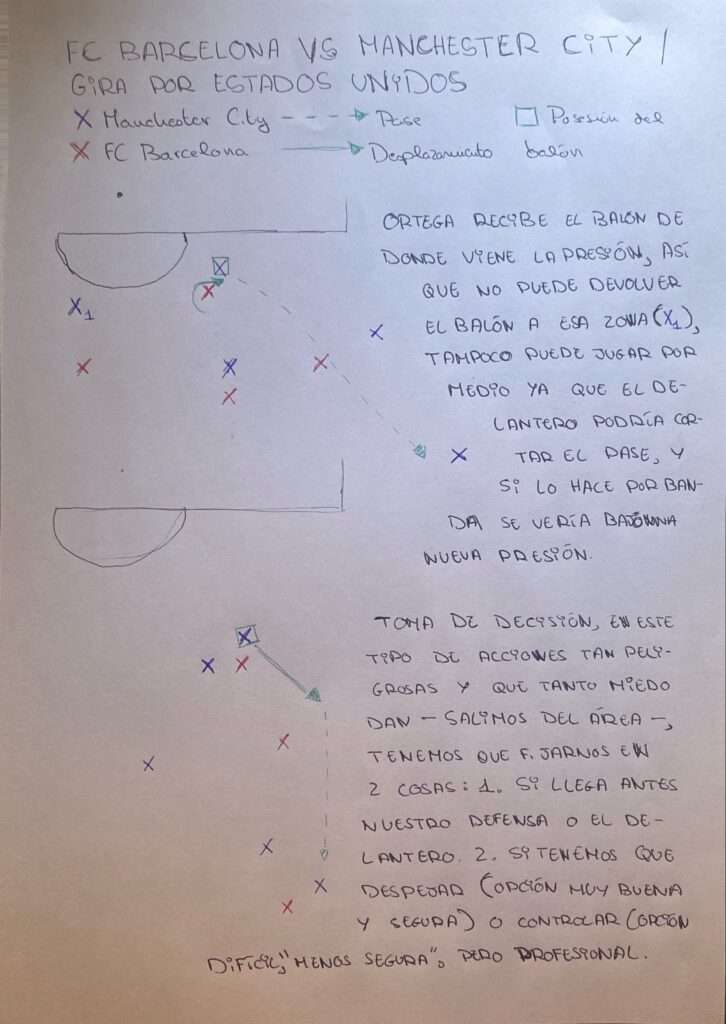 FC BARCELONA VS MANCHESTER CITY /
GIRA POR ESTADOS UNIDOS
X Manchester City - - - → Pase □ Posesión del
X FC Barcelona → Desplazamiento balón
ORTEGA RECIBE EL BALÓN DE
DONDE VIENE LA PRESIÓN, ASÍ
QUE NO PUEDE DEVOLVER
EL BALÓN A ESA ZONA (X1),
TAMPOCO PUEDE JUGAR POR
MEDIO YA QUE EL DE-
LANTERO PODRÍA COR-
TAR EL PASE, Y
SI LO HACE POR BAN-
DA SE VERÍA BAJO UNA
NUEVA PRESIÓN.
X1
TOMA DE DECISIÓN, EN ESTE
TIPO DE ACCIONES TAN PELI-
GROSAS Y QUE TANTO MIEDO
DAN - SALIMOS DEL ÁREA -,
TENEMOS QUE FIJARNOS EN
2 COSAS: 1. SI LLEGA ANTES
NUESTRO DEFENSA O EL DE-
LANTERO. 2. SI TENEMOS QUE
DESPEJAR (OPCIÓN MUY BUENA
Y SEGURA) O CONTROLAR (OPCIÓN
DIFÍCIL, "MENOS SEGURA", PERO PROFESIONAL.